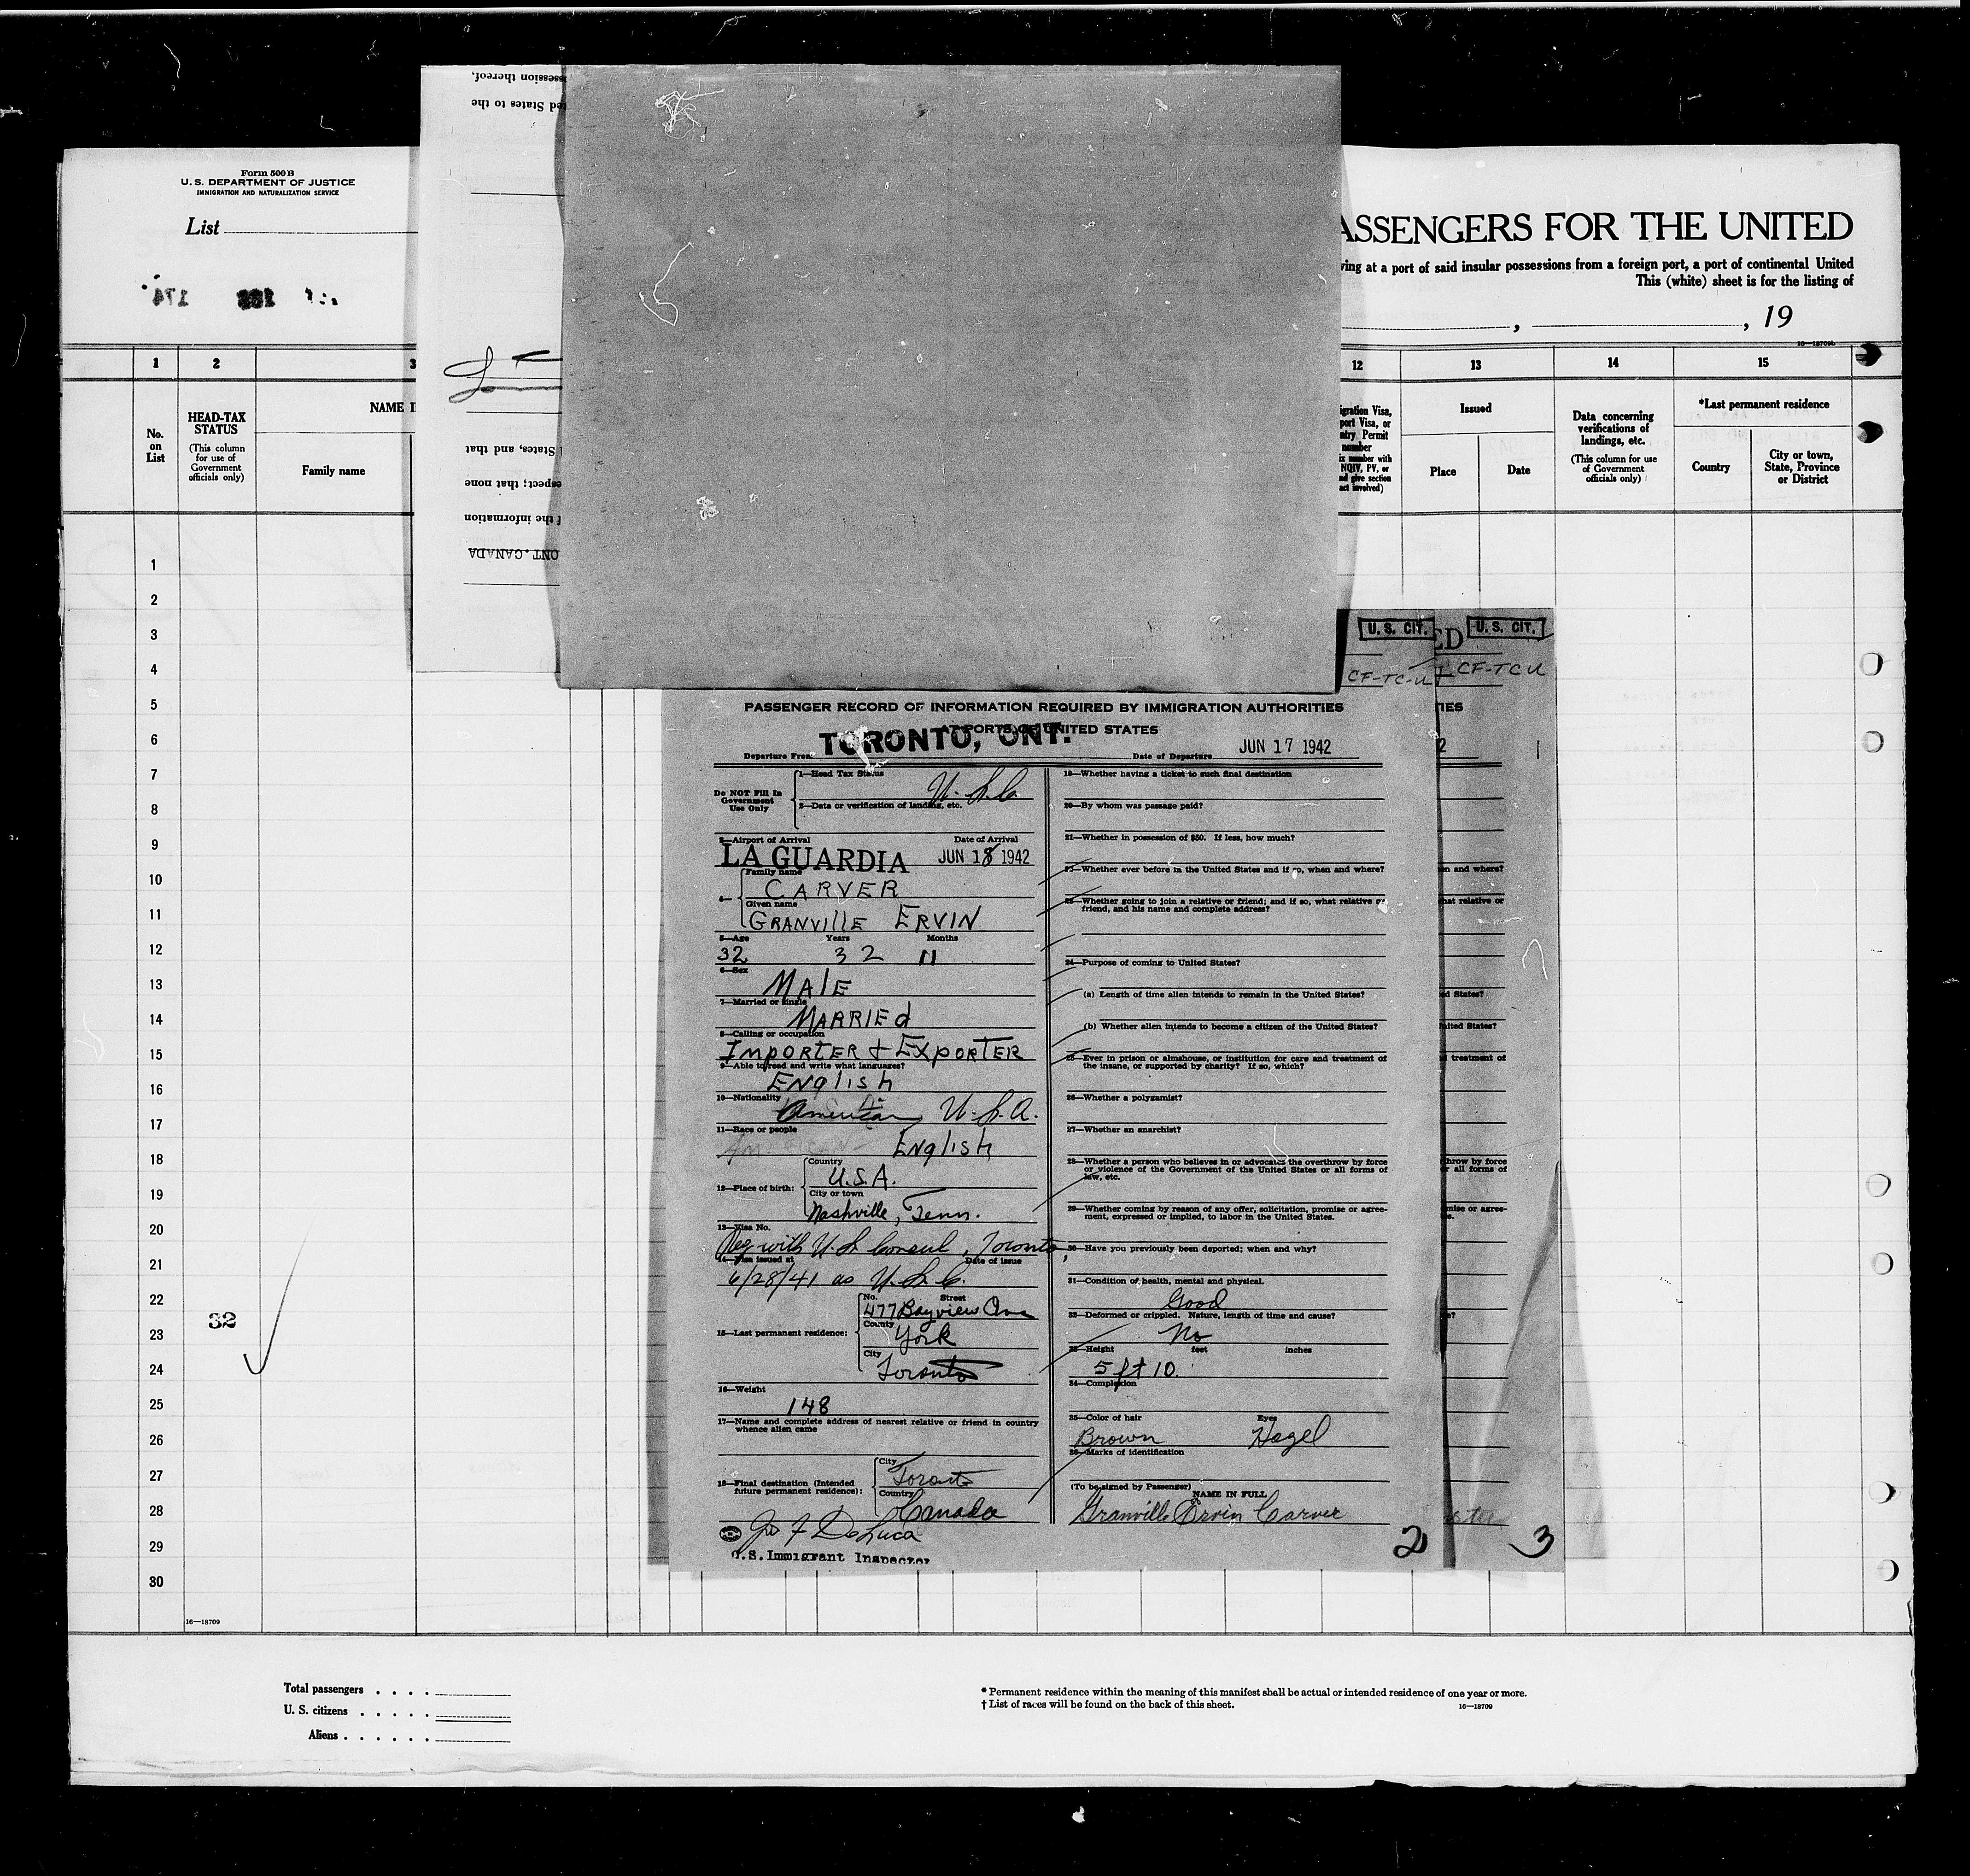 Form 500 B
U. S. DEPARTMENT OF JUSTICE
IMMIGRATION AND NATURALIZATION SERVICE
List
174
ssession thereof,
ed States to the
States, and that
spect; that none
f the information
ONT. CANADA
ASSENGERS FOR THE UNITED
ving at a port of said insular possessions from a foreign port, a port of continental United
This (white) sheet is for the listing of
, , 19
16—18709b
1 2 3 12 13 14 15
No. on List
HEAD-TAX STATUS
(This column for use of Government officials only)
NAME I
Family name
igration Visa,
port Visa, or
ntry Permit
number
ix number with
NQIV, PV, or
nd give section
act involved)
Issued
Place Date
Data concerning verifications of landings, etc.
(This column for use of Government officials only)
*Last permanent residence
Country
City or town, State, Province or District
1
2
3
4
5
6
7
8
9
10
11
12
13
14
15
16
17
18
19
20
21
22
23
24
25
26
27
28
29
30
32
16—18709
U. S. CIT. ED U. S. CIT.
CF-TC-U CF-TCU
PASSENGER RECORD OF INFORMATION REQUIRED BY IMMIGRATION AUTHORITIES
AT PORTS OF UNITED STATES
TORONTO, ONT.
Departure From Date of Departure JUN 17 1942
Do NOT Fill In Government Use Only
1—Head Tax Status
U.S.C.
2—Data or verification of landing, etc.
3—Airport of Arrival Date of Arrival
LA GUARDIA JUN 18 1942
4—
Family name
CARVER
Given name
GRANVILLE ERVIN
5—Age Years Months
32 32 11
6—Sex
MALE
7—Married or single
MARRIED
8—Calling or occupation
IMPORTER + EXPORTER
9—Able to read and write what languages?
ENglish
10—Nationality
American U.S.A.
11—Race or people
ENglish
12—Place of birth:
Country
U.S.A.
City or town
Nashville, Tenn.
13—Visa No.
Reg with U.S. Consul, Toronto,
14—Visa issued at Date of issue
6/28/41 as U.S.C.
15—Last permanent residence:
No. Street
477 Bayview Ave
County
York
City
Toronto
16—Weight
148
17—Name and complete address of nearest relative or friend in country
whence alien came
18—Final destination (Intended
future permanent residence):
City
Toronto
Country
Canada
Jos F DeLuca
U.S. Immigrant Inspector
19—Whether having a ticket to such final destination
20—By whom was passage paid?
21—Whether in possession of $50. If less, how much?
22—Whether ever before in the United States and if so, when and where?
23—Whether going to join a relative or friend; and if so, what relative or
friend, and his name and complete address?
24—Purpose of coming to United States?
(a) Length of time alien intends to remain in the United States?
(b) Whether alien intends to become a citizen of the United States?
25—Ever in prison or almshouse, or institution for care and treatment of
the insane, or supported by charity? If so, which?
26—Whether a polygamist?
27—Whether an anarchist?
28—Whether a person who believes in or advocates the overthrow by force
or violence of the Government of the United States or all forms of
law, etc.
29—Whether coming by reason of any offer, solicitation, promise or agree-
ment, expressed or implied, to labor in the United States.
30—Have you previously been deported; when and why?
31—Condition of health, mental and physical.
Good
32—Deformed or crippled. Nature, length of time and cause?
No
33—Height feet inches
5 ft 10
34—Complexion
35—Color of hair Eyes
Brown Hazel
36—Marks of identification
(To be signed by Passenger)
NAME IN FULL
Granville Ervin Carver
2
TIES
2
en and where?
hat relative or
ed States?
nited States?
d treatment of
throw by force
or all forms of
mise or agree-
s.
e?
3
Total passengers . . . .
U. S. citizens . . . . .
Aliens . . . . . .
* Permanent residence within the meaning of this manifest shall be actual or intended residence of one year or more.
† List of races will be found on the back of this sheet.
16—18709